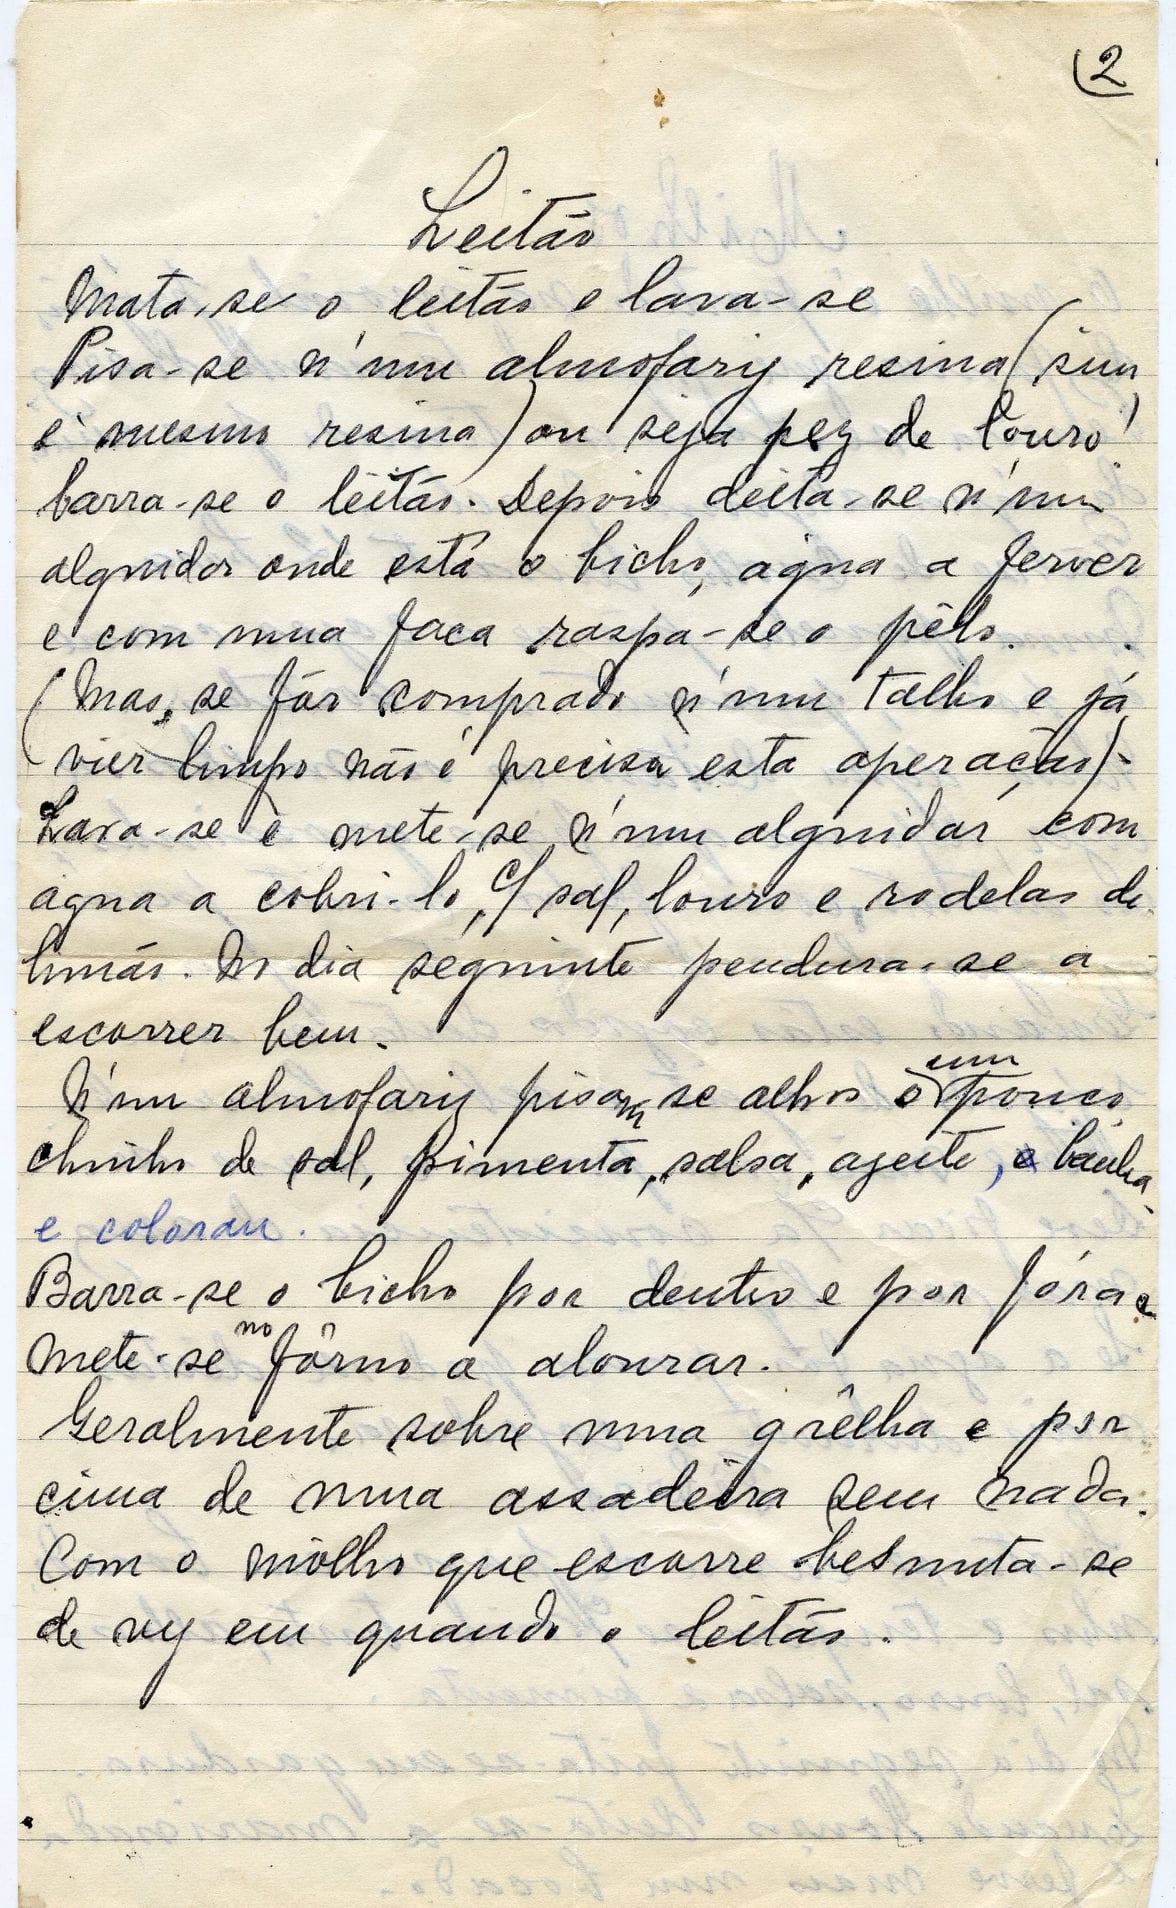 2
Leitão
Mata-se o leitão e lava-se
Pisa-se n'um almofariz resina (sim,
é mesmo resina) ou seja pez de louro!
barra-se o leitão. Depois deita-se n'um
alguidar onde está o bicho, água a ferver
e com uma faca raspa-se o pêlo.
(Mas, se fôr comprado n'um talho e já
vier limpo não é precisa esta operação)-
Lava-se e mete-se n'um alguidar com
água a cobri-lo, c/ sal, louro e rodelas de
limão. No dia seguinte pendura-se a
escorrer bem.
N'um almofariz pisam se alhos e um pouco
chinho de sal, pimenta, salsa, azeite, banha
e colorau.
Barra-se o bicho por dentro e por fóra e
mete-se no fôrno a alourar.
Geralmente sobre uma grêlha e por
cima de uma assadeira sem nada.
Com o môlho que escorre besunta-se
de vez em quando o leitão.